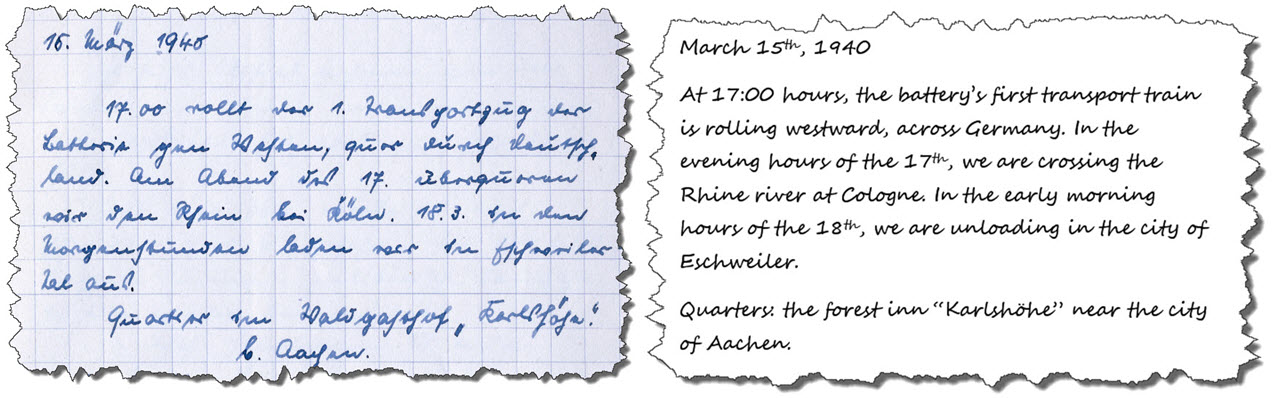 15. März 1940
17.00 rollt der 1. Transportzug der
Batterie gen Westen, quer durch Deutsch-
land. Am Abend des 17. überqueren
wir den Rhein bei Köln. 18.3. in den
Morgenstunden laden wir in Eschweiler
Tal aus.
Quartier im Waldgasthof „Karlshöhe."
b. Aachen.
March 15th, 1940
At 17:00 hours, the battery's first transport train
is rolling westward, across Germany. In the
evening hours of the 17th, we are crossing the
Rhine river at Cologne. In the early morning
hours of the 18th, we are unloading in the city of
Eschweiler.
Quarters: the forest inn "Karlshöhe" near the city
of Aachen.